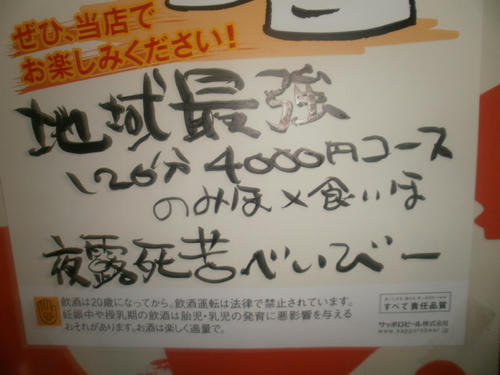 ぜひ、当店で
お楽しみください!
地域最強
120分4000円コース
のみほ×食いほ
夜露死苦べいびー
飲酒は20歳になってから。飲酒運転は法律で禁止されています。
妊娠中や授乳期の飲酒は胎児・乳児の発育に悪影響を与える
おそれがあります。お酒は楽しく適量で。
すべて責任品質
サッポロビール株式会社
www.sapporobeer.jp